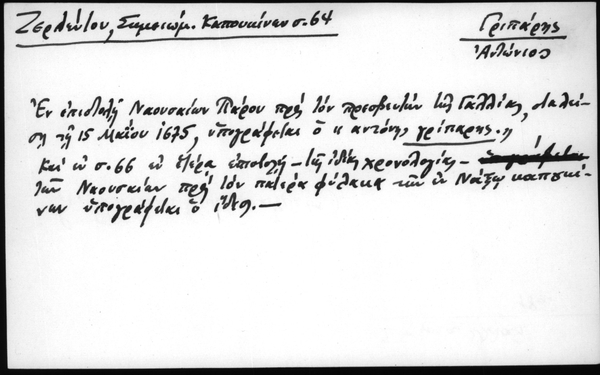 Ζερλέντου, Σημειώμ. Καπουκίνων σ. 64
Γριπάρης
Ἀντώνιος
Ἐν ἐπιστολῇ Ναουσαίων Πάρου πρὸς τὸν πρεσβευτὴν τῆς Γαλλίας,
τῇ 15 Μαΐου 1675, ὑπογράφεται ὁ "αντόνης γρίπαρης."
Καὶ ἐν σ. 66 ἐν ἑτέρᾳ ἐπιστολῇ – τῆς ἰδίας χρονολογίας –
τῶν Ναουσαίων πρὸς τὸν πατέρα φύλακα τῶν ἐν Νάξῳ καπουκί-
νων ὑπογράφεται ὁ ἴδιος. –